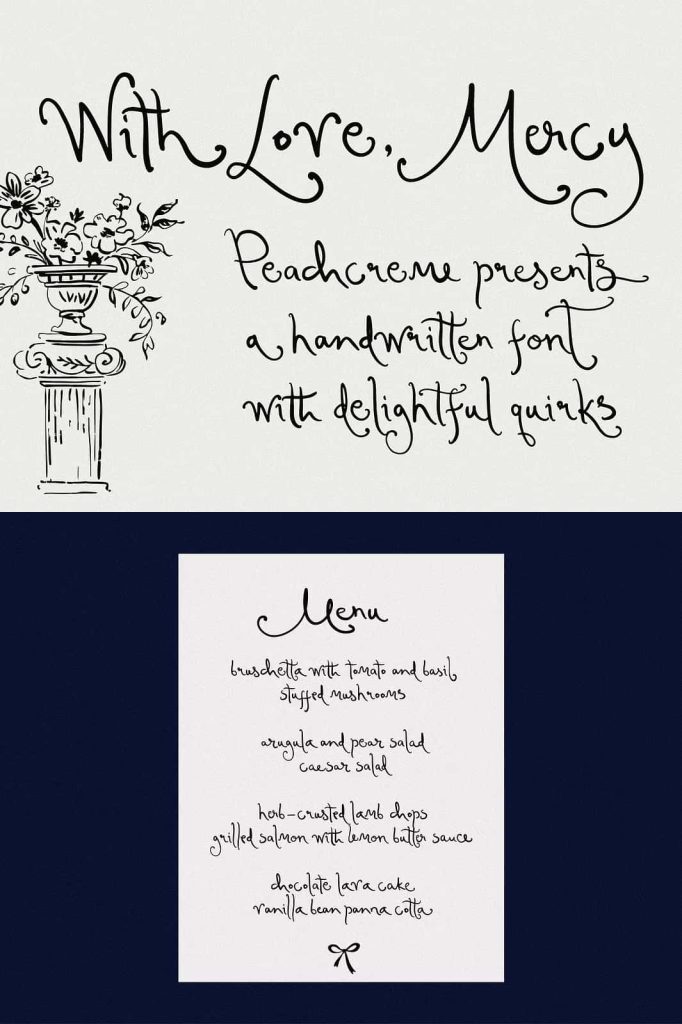 With Love, Mercy
Peachcreme presents
a handwritten font
with delightful quirks
Menu
bruschetta with tomato and basil
stuffed mushrooms
arugula and pear salad
caesar salad
herb-crusted lamb chops
grilled salmon with lemon butter sauce
chocolate lava cake
vanilla bean panna cotta